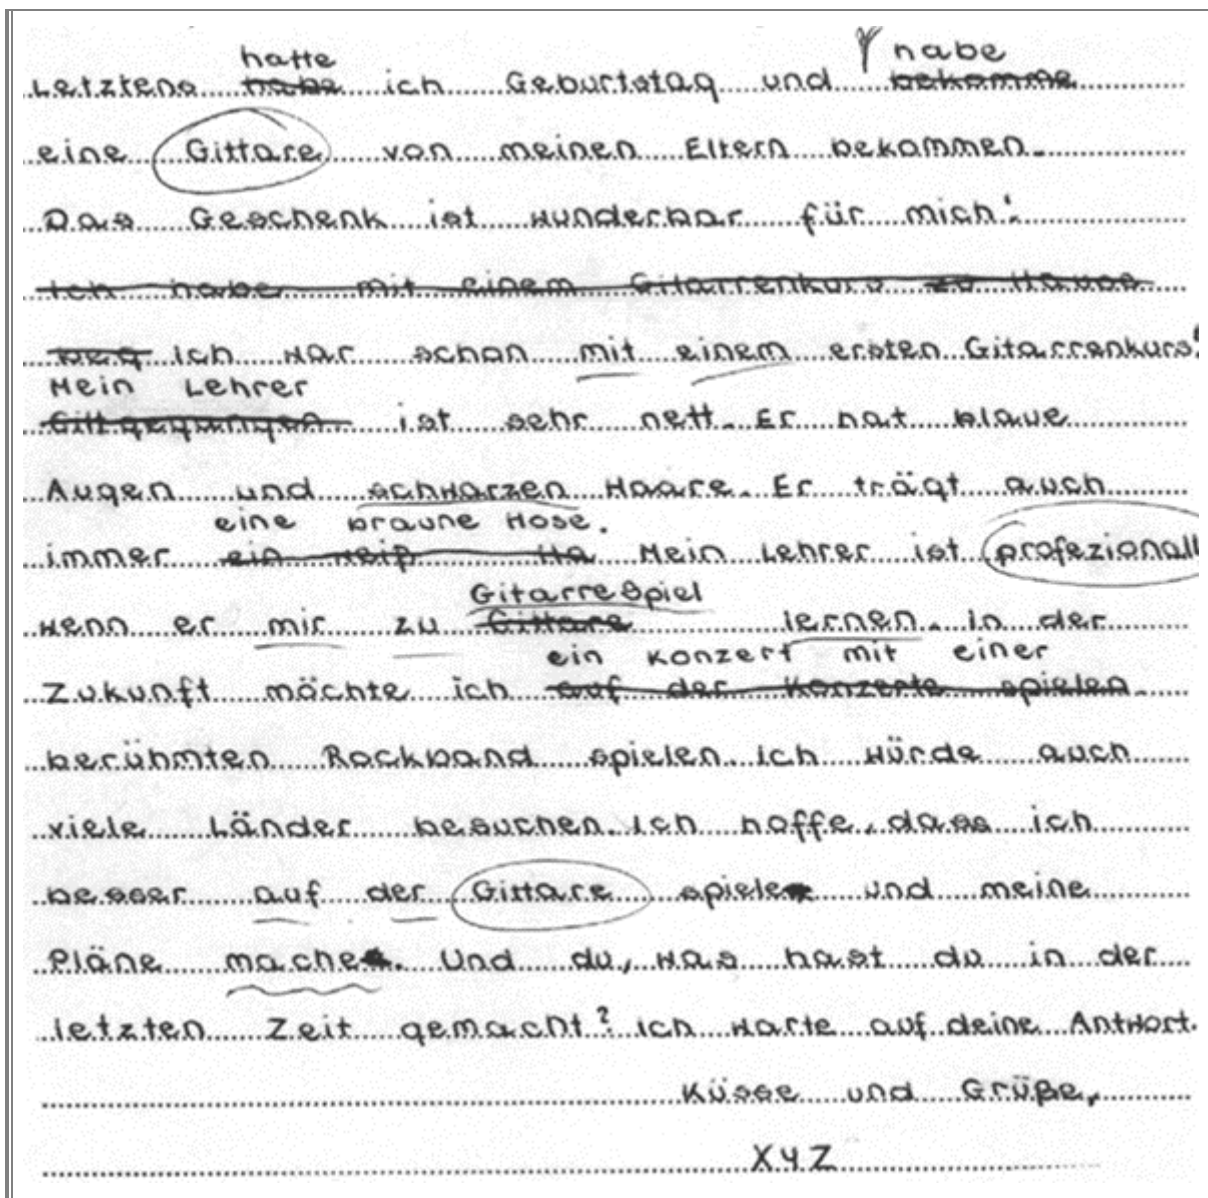 hatte habe
Letztens habe ich Geburtstag und bekomme
eine Gittare von meinen Eltern bekommen.
Das Geschenk ist wunderbar für mich!
Ich habe mit einem Gitarrenkurs zu Hause
beg ich war schon mit einem ersten Gitarrenkurs!
Mein Lehrer
ist sehr nett. Er hat blaue
Augen und schwarzen Haare. Er trägt auch
eine braune Hose.
immer ein weiß Ha Mein Lehrer ist profezionall
Gitarrespiel
wenn er mir zu Gittare lernen. In der
ein Konzert mit einer
Zukunft möchte ich auf der Konzerte spielen.
berühmten Rockband spielen. Ich würde auch
viele Länder besuchen. Ich hoffe, dass ich
besser auf der Gittare spiele und meine
Pläne mache. Und du, was hast du in der
letzten Zeit gemacht? Ich warte auf deine Antwort.
Küsse und Grüße,
XYZ